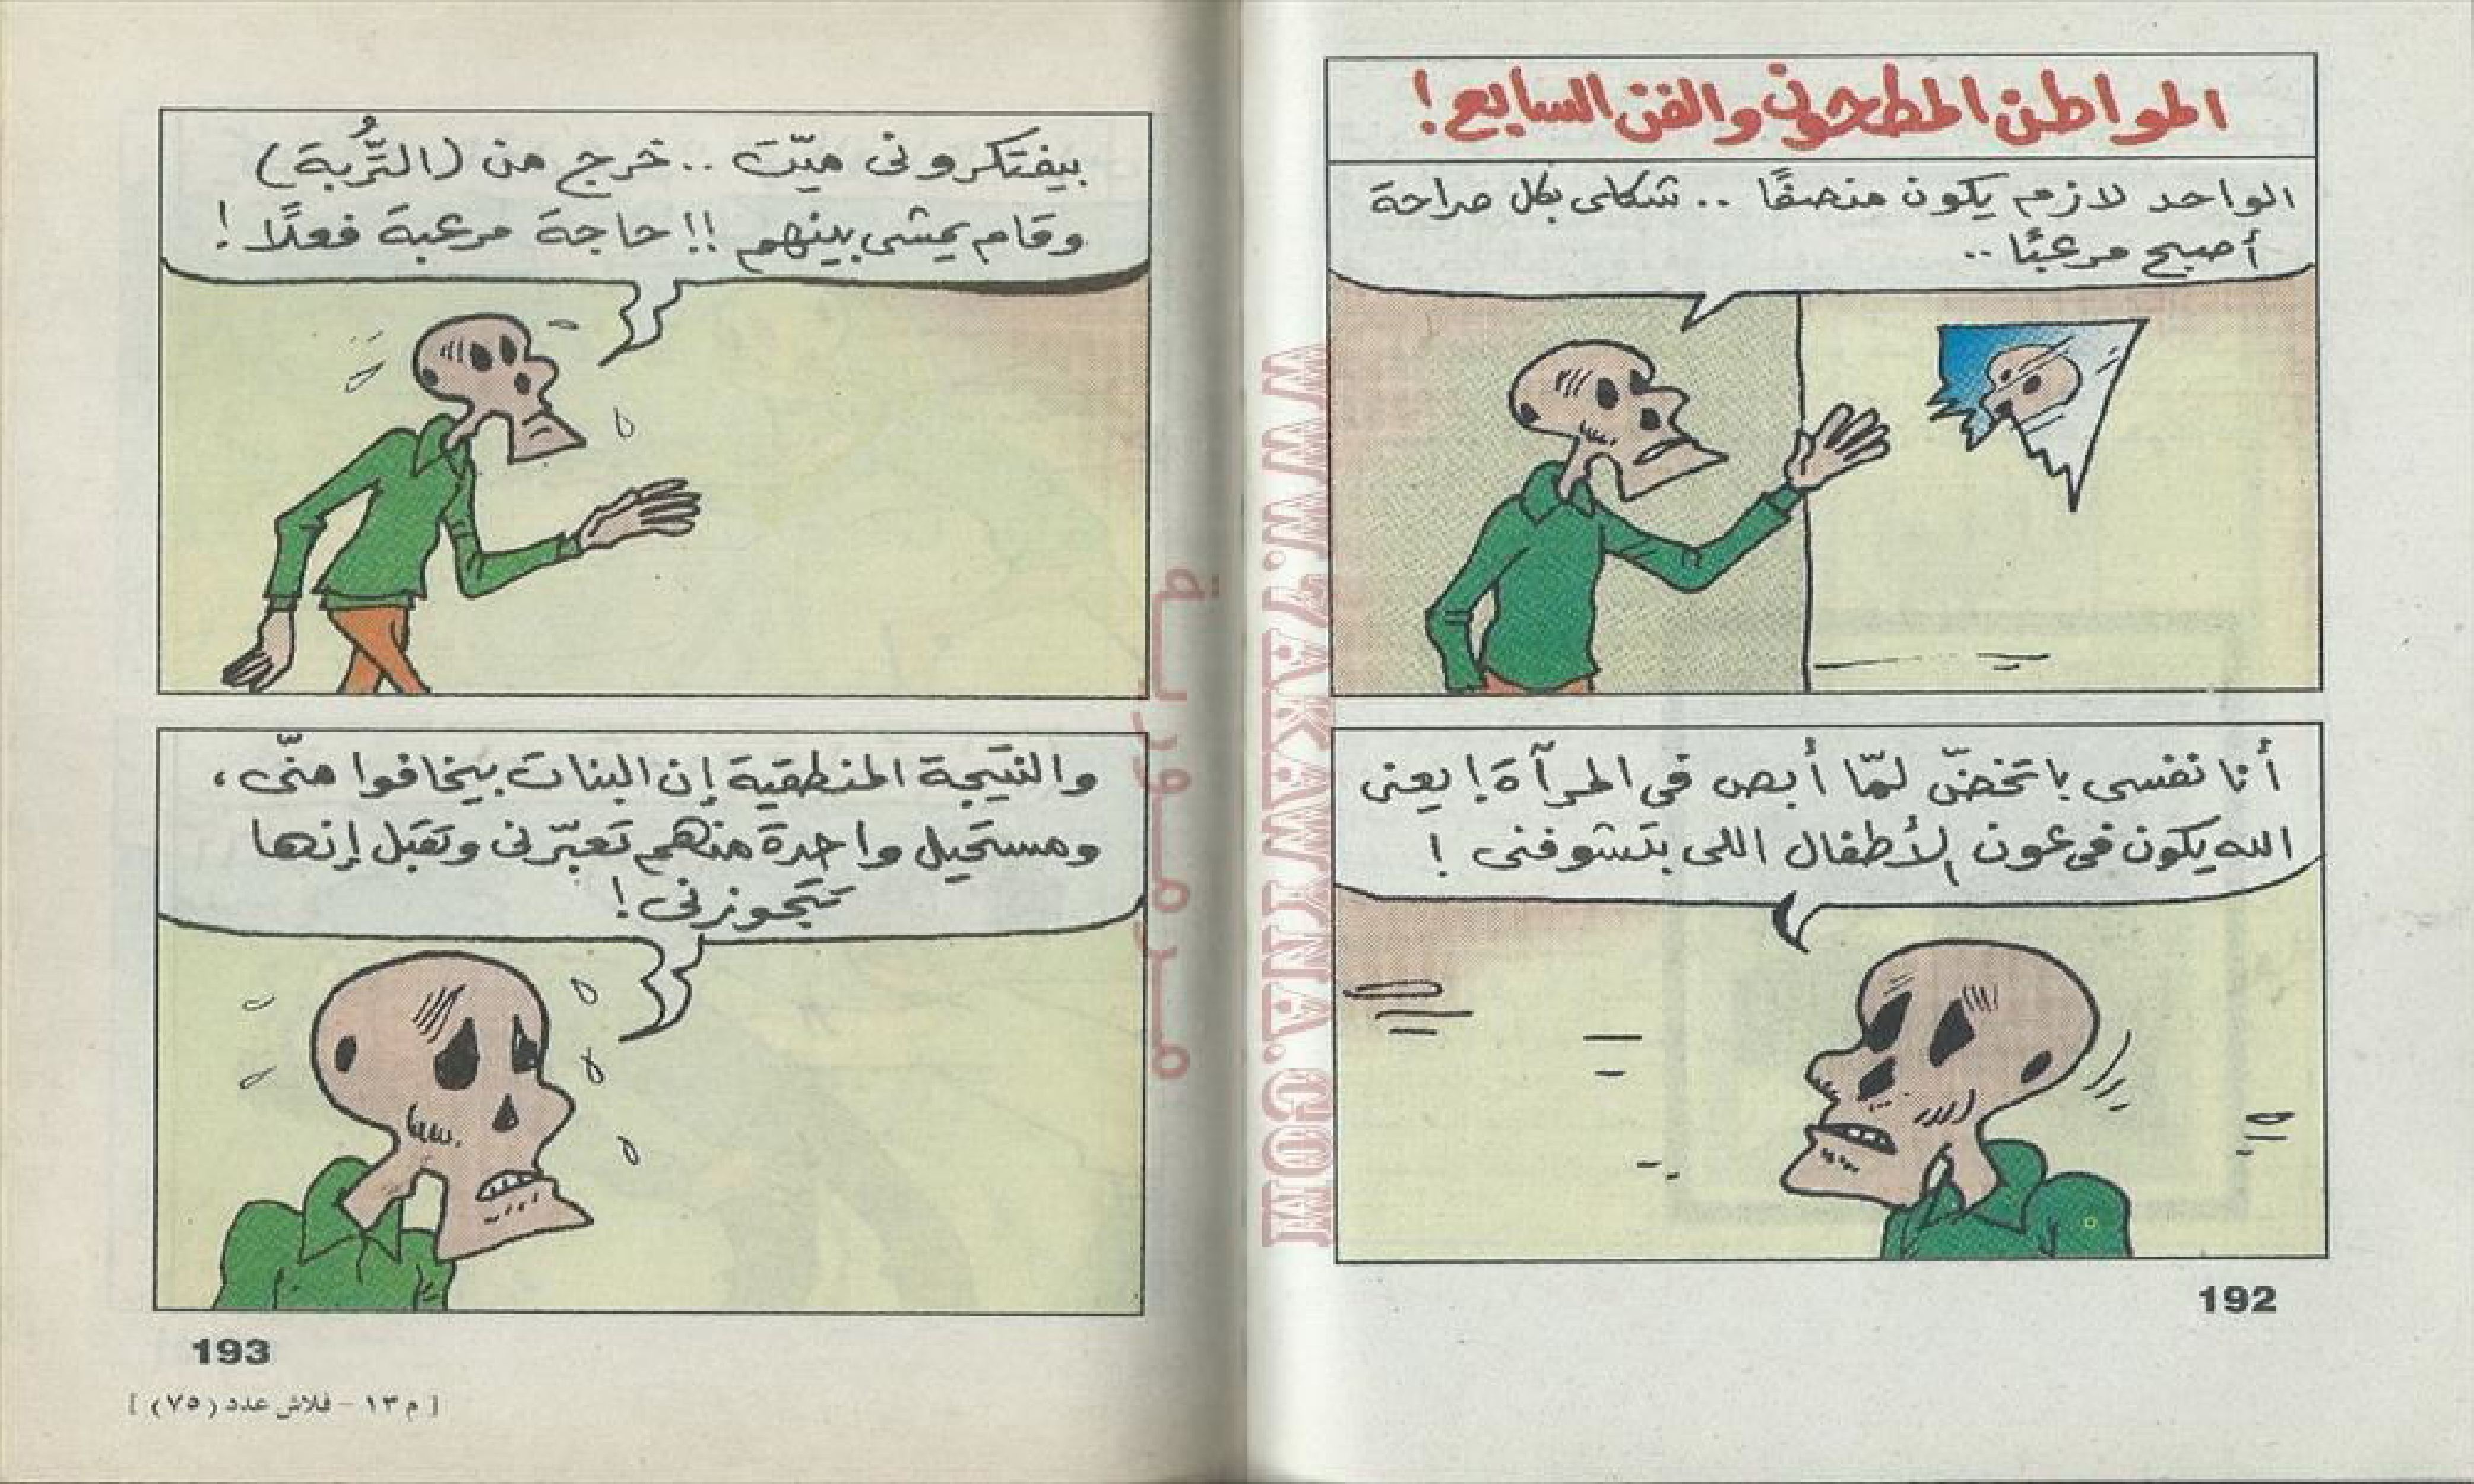 المواطن المطحون والفن السابع!
الواحد لازم يكون منصفًا .. شكلى بكل صراحة
أصبح مرعبًا ..
أنا نفسى باتخضّ لمّا أبص فى المرآة! يعنى
الله يكون فى عون الأطفال اللى بتشوفنى !
192
بيفتكرونى ميّت .. خرج من (التُّربة)
وقام يمشى بينهم !! حاجة مرعبة فعلًا !
والنتيجة المنطقية إن البنات بيخافوا منّى ،
ومستحيل واحدة منهم تعبّرنى وتقبل إنها
تتجوزنى !
193
[ م ١٣ – فلاش عدد (٧٥) ]
WWW.ZAKAWKINA.COM
مرمورية